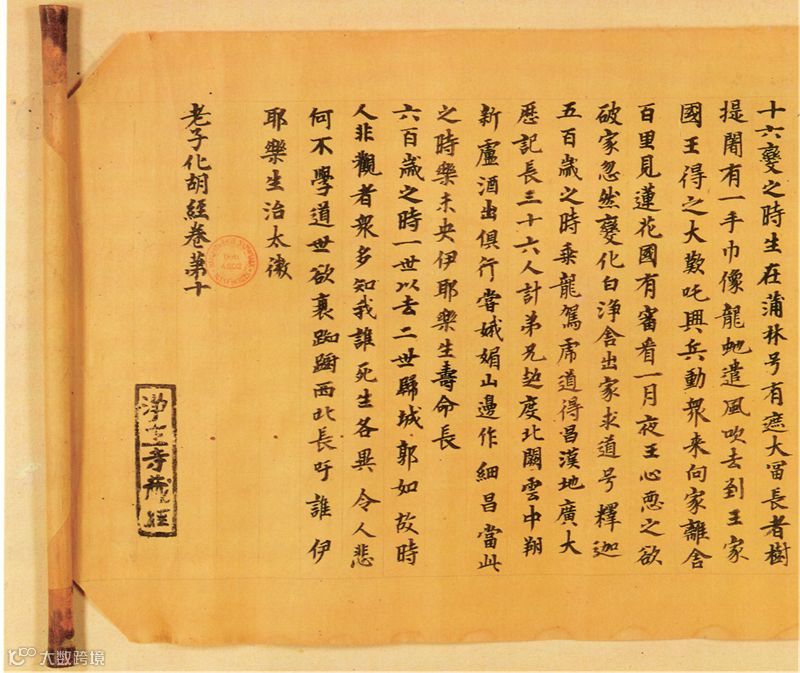 十六變之時生在蒲林号有遮大冨長者樹
提闍有一手巾像龍虵遣風吹去到王家
國王得之大歎吒興兵動衆来向家離舍
百里見蓮花國有審看一月夜王心惡之欲
破家忽然變化白淨舍出家求道号釋迦
五百歲之時乗龍駕虎道得昌漢地廣大
歷記長三十六人計弟兄越度北闕雲中翔
新盧酒出俱行嘗娥媚山邊作細昌當此
之時樂未央伊耶樂生壽命長
六百歲之時一世以去二世歸城郭如故時
人非觀者衆多知我誰死生各異令人悲
何不學道世欲衰踟躕西北長吁誰伊
耶樂生治太微
老子化胡經卷第十
淨土寺藏經
大数跨境